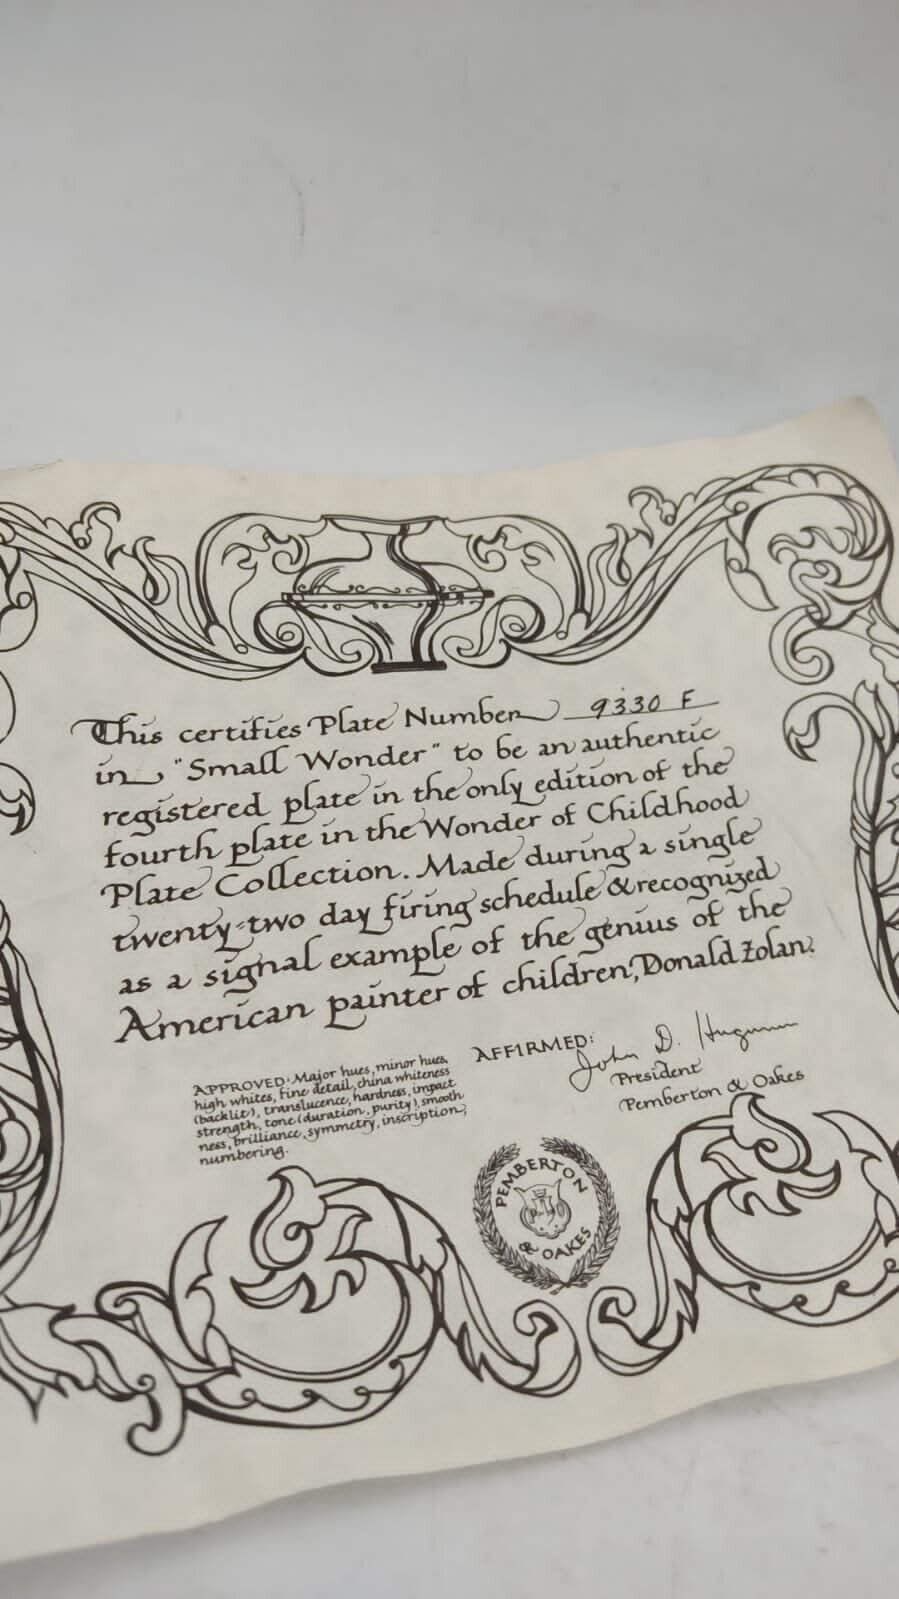 This certifies Plate Number 9330 F
in "Small Wonder" to be an authentic
registered plate in the only edition of the
fourth plate in the Wonder of Childhood
Plate Collection. Made during a single
twenty-two day firing schedule & recognized
as a signal example of the genius of the
American painter of children, Donald Zolan.
APPROVED: Major hues, minor hues,
high whites, fine detail, china whiteness
(backlit), translucence, hardness, impact
strength, tone (duration, purity), smooth
ness, brilliance, symmetry, inscription,
numbering.
AFFIRMED:
John D.
President
Pemberton & Oakes
PEMBERTON
& OAKES